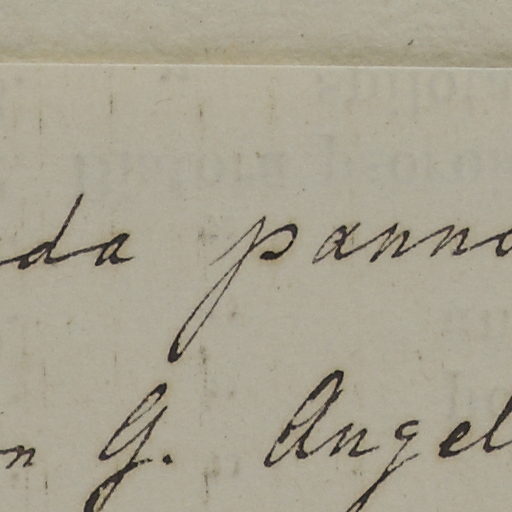 da panno
n G. Angel